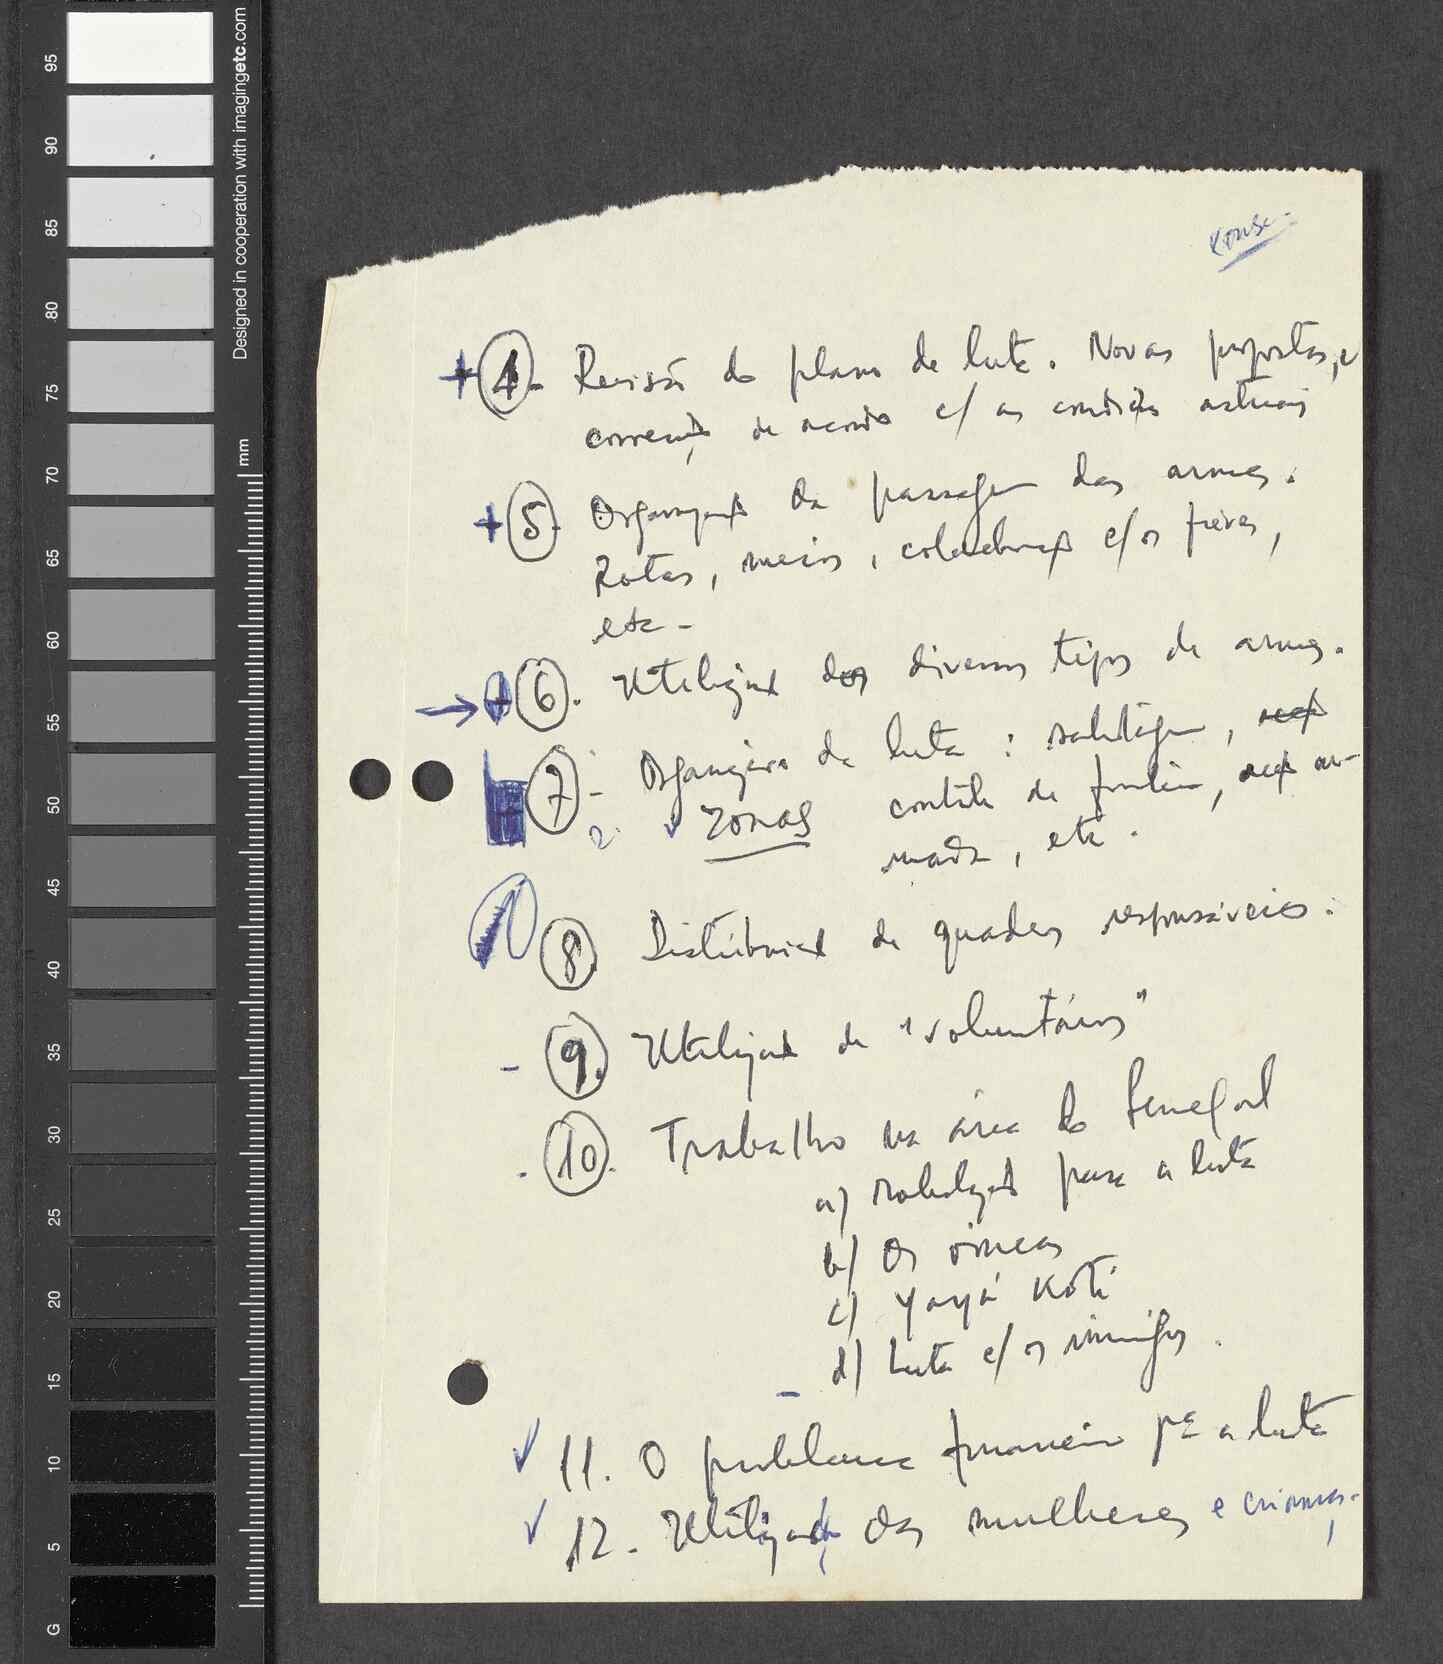 + 4. Revisão do plano de luta. Novas propostas, e
correcção de acordo c/ as condições actuais
+ 5. Organização da passagem das armas.
Rotas, meios, colaboração c/ os frères,
etc -
→ + 6. Utilização dos diversos tipos de armas.
7 - Organização da luta : sabotagem,
2. v zonas controle de fronteira, acção ar-
mada, etc.
8. Distribuição de quadros responsáveis.
- 9. Utilização de "voluntários"
10. Trabalho na área do Senegal
a) Mobilização para a luta
b) Os
c) Yayá Koté
d) Luta c/ os inimigos.
✓ 11. O problema financeiro pª a luta
✓ 12. Utilização das mulheres e crianças.
Designed in cooperation with imagingetc.com
mm
95
90
85
80
75
70
65
60
55
50
45
40
35
30
25
20
15
10
5
G